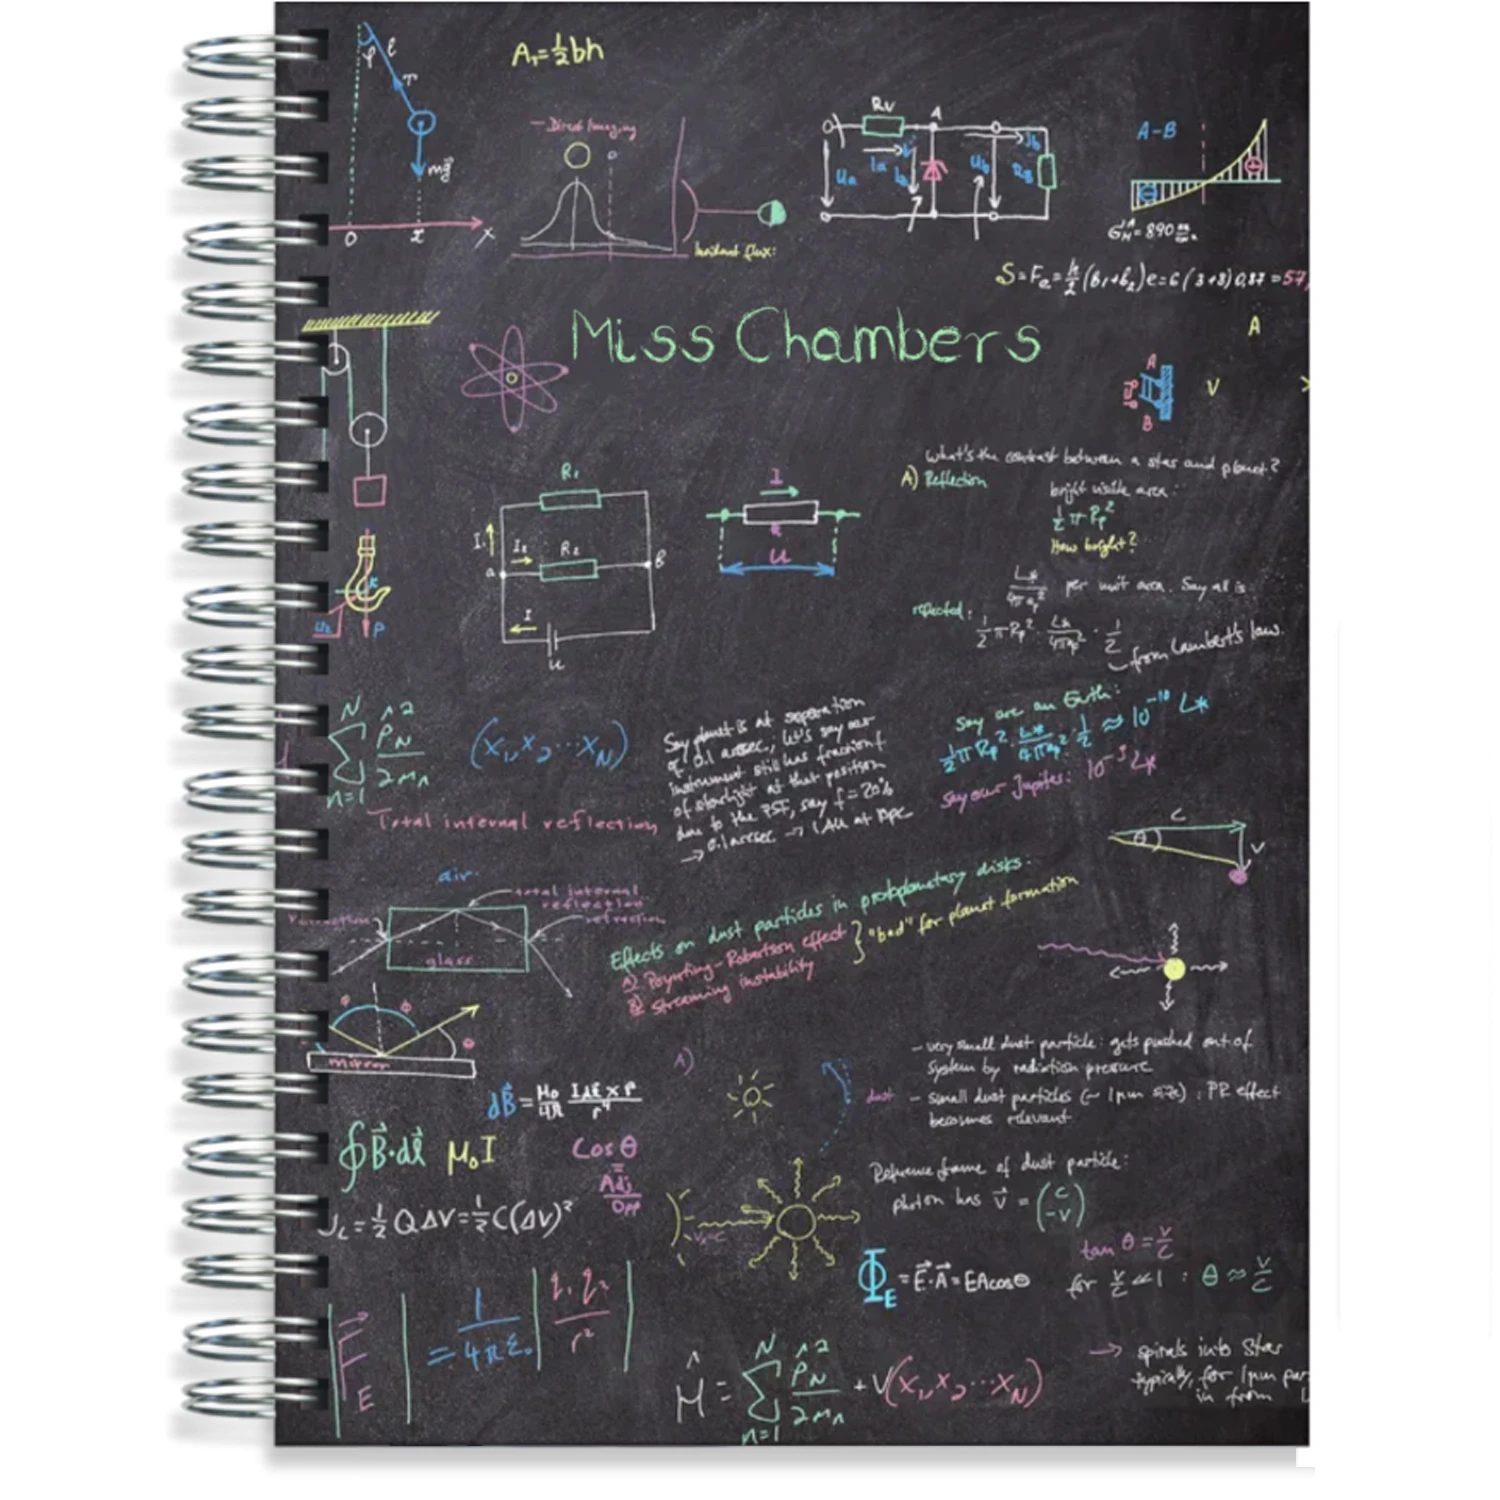 A_T=½bh
φ ℓ
T
mg⃗
0 x X
- Direct Imaging
Incident flux:
Rv A
Ua Ia Ub
A-B
= 890
S=Fe=h/2(b₁+b₂)e=6(3+8)0,87=57,
Miss Chambers
A
A
V
B
R₁
I₁ I₂ R₂
a B
I
u
I
R
U
K
P
What's the contrast between a star and planet?
A) Reflection
bright visible area:
½πRp²
How bright?
L*/4πap² per unit area. Say all is
reflected: ½πRp² · L*/4πap² · ½
from Lambert's law.
N
∑ p̂²N/2mn (x₁,x₂...xN)
n=1
Say planet is at separation
of 0.1 arcsec; let's say our
instrument still has fraction f
of starlight at that position
due to the PSF, say f=20%
→ 0.1 arcsec → 1AU at pc
Say are an Earth:
½πRp² · L*/4πap² · ½ ≈ 10⁻¹⁰ L*
say our Jupiter: L*
Total internal reflection
air
total internal
reflection
refraction
glass
C
θ V
Effects on dust particles in protoplanetary disks:
A) Poynting-Robertson effect
B) streaming instability
} "bad" for planet formation
φ φ
θ
mirror
- very small dust particle: gets pushed out of
system by radiation pressure
dust - small dust particles (~ 1μm size): PR effect
becomes relevant
A)
dB⃗=μ₀/4π
∮B⃗·dℓ⃗ μ₀I
Cos θ
=
Adj
Opp
Reference frame of dust particle:
photon has v⃗ = (c -v)
Uc=½QΔV=½C(ΔV)²
tan θ = v/c
for v/c ≪ 1 : θ ≈ v/c
ΦE=E⃗·A⃗=EAcosθ
|F⃗E| = 1/4πε₀ |q₁q₂/r²|
→ spirals into Star
typically, for 1μm par
in from
N
Ĥ = ∑ p̂²N/2mn + V(x₁,x₂...xN)
n=1